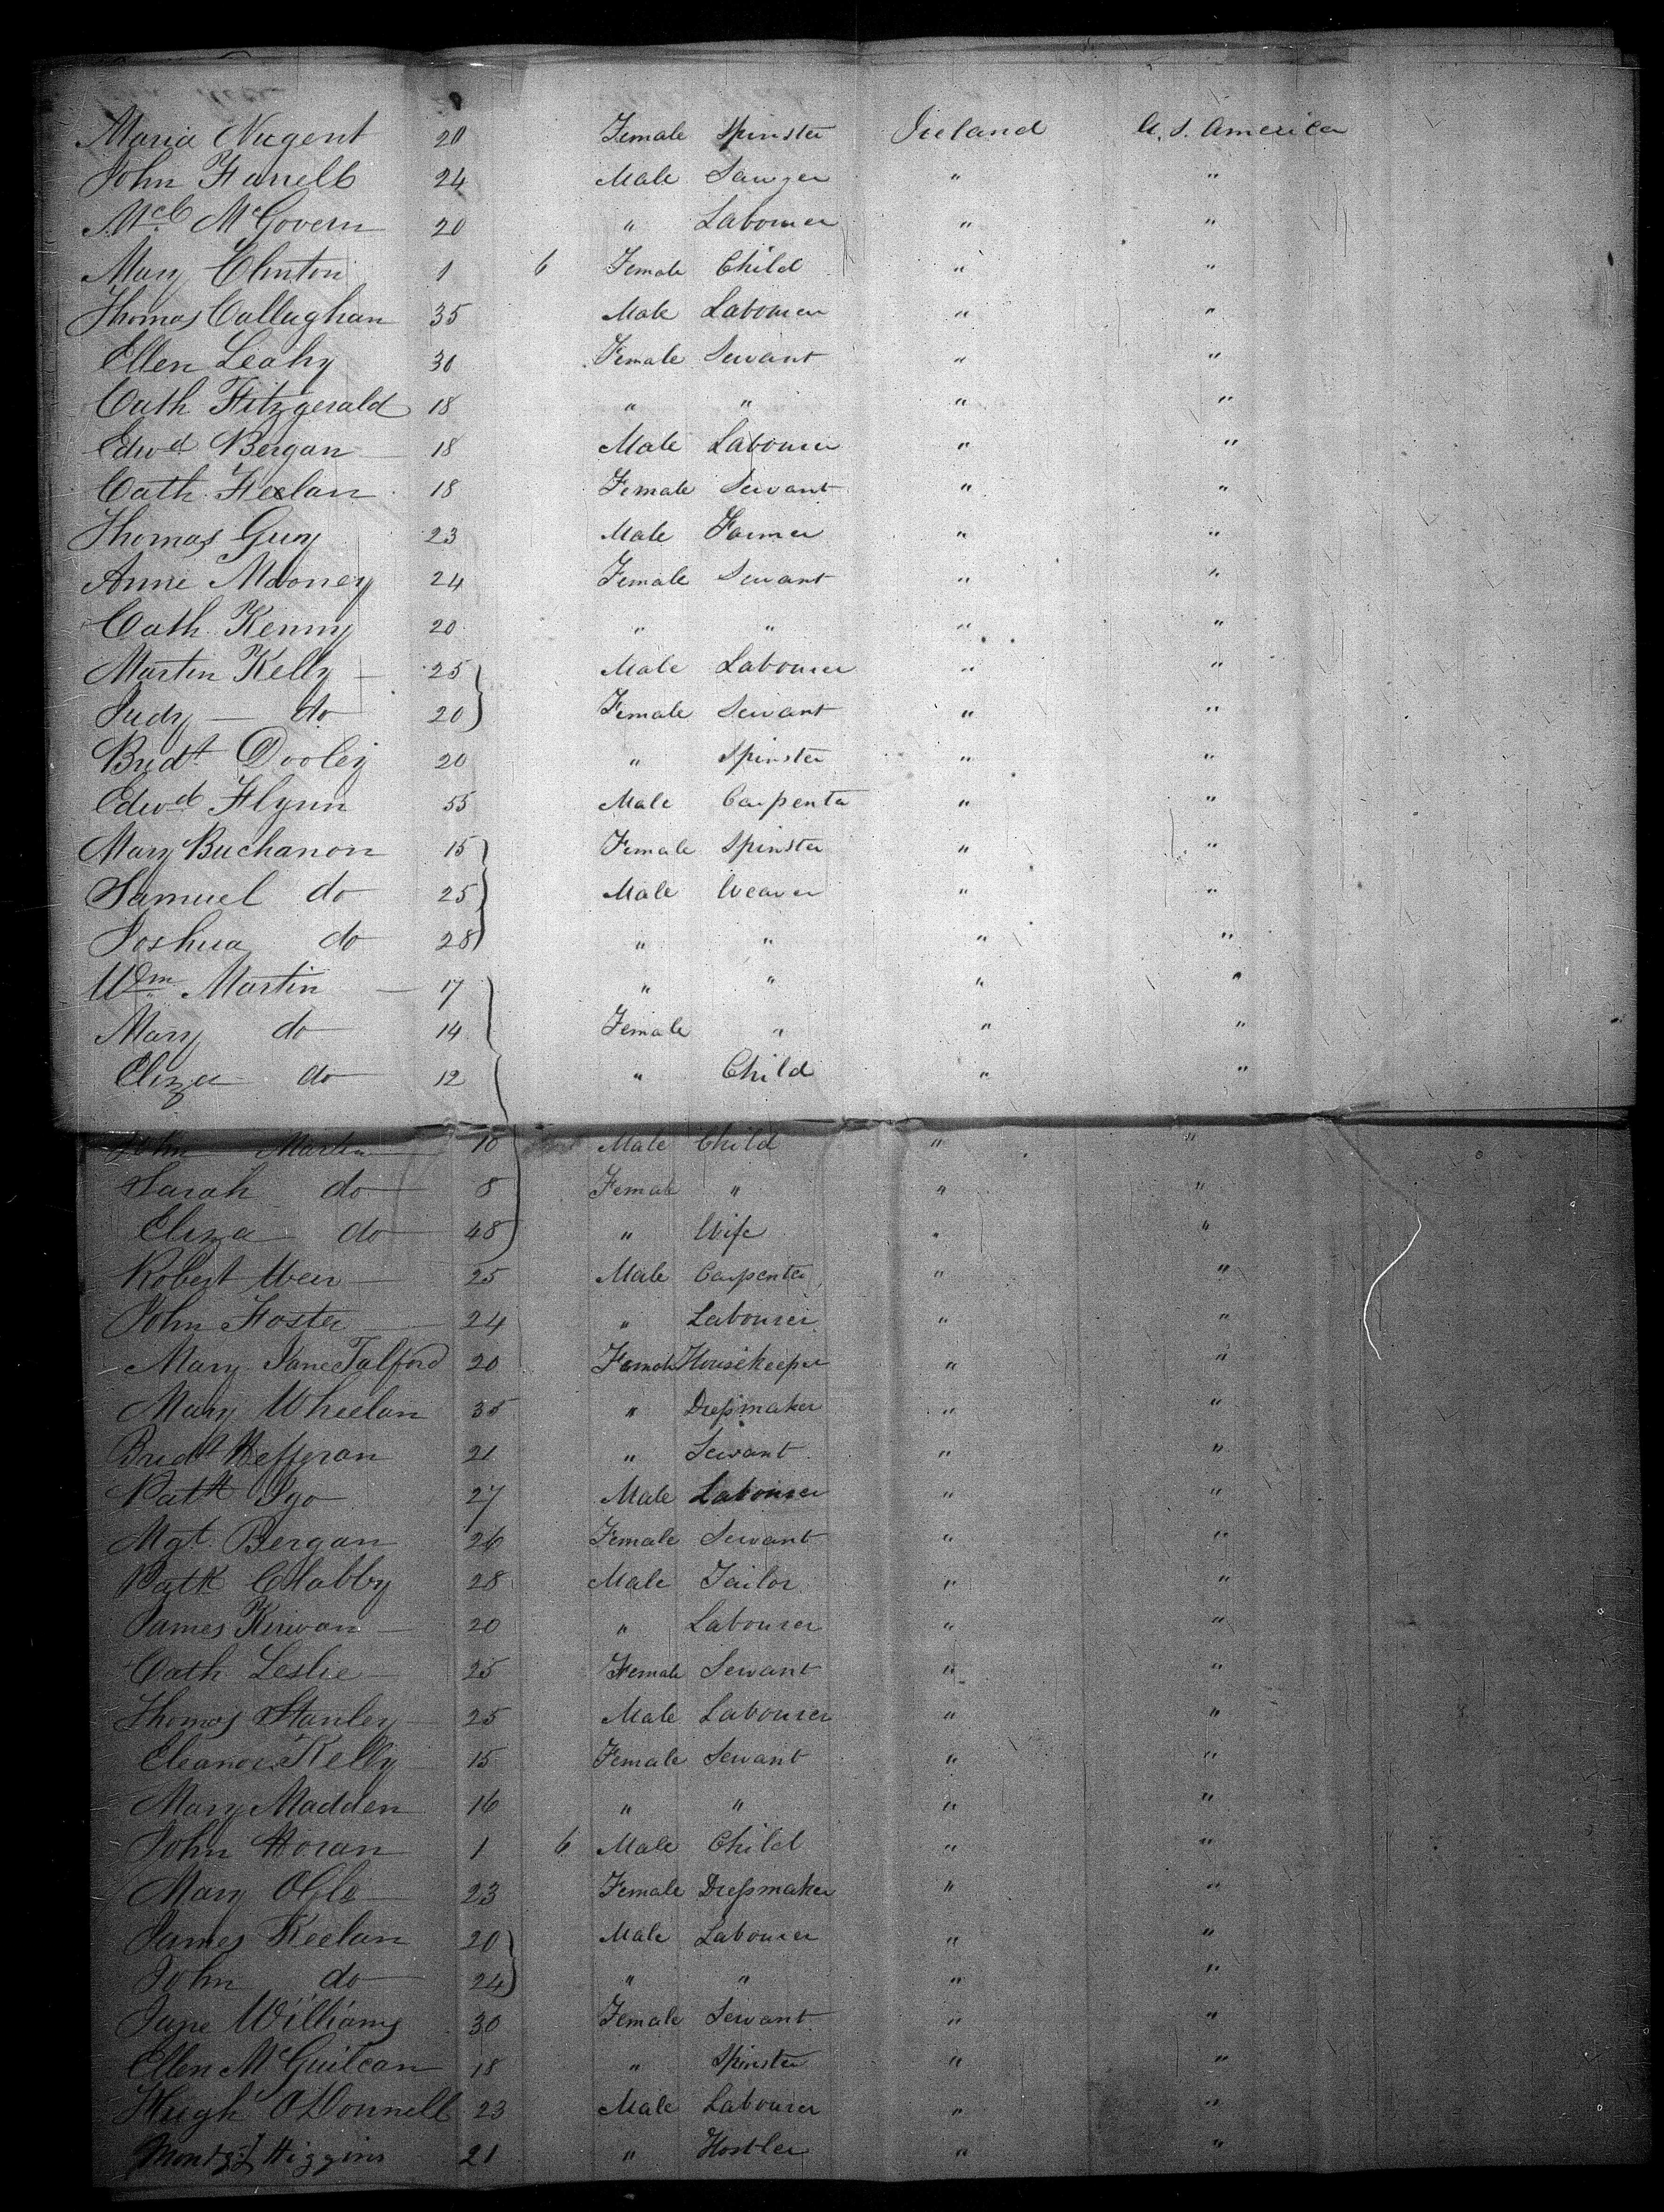 Maria Nugent 20 Female Spinster Ireland U. S. America
John Farrell 24 Male Sawyer " "
Mcl McGovern 20 " Labourer " "
Mary Clinton 1 6 Female Child " "
Thomas Callaghan 35 Male Labourer " "
Ellen Leahy 30 Female Servant " "
Cath Fitzgerald 18 " " " "
Edwd Bergan 18 Male Labourer " "
Cath. 18 Female Servant " "
Thomas Guy 23 Male Farmer " "
Anne Mooney 24 Female Servant " "
Cath Kenny 20 " " " "
Martin Kelly 25 Male Labourer " "
Judy do 20 Female Servant " "
Bridt Dooley 20 " Spinster " "
Edwd Flynn 55 Male Carpenter " "
Mary Buchanon 15 Female Spinster " "
Samuel do 25 Male Weaver " "
Joshua do 28 " " " "
Wm Martin 17 " " " "
Mary do 14 Female " " "
Eliza do 12 " Child " "
John Martin 10 Male Child " "
Sarah do 8 Female " " "
Eliza do 48 " Wife " "
Robert Weir 25 Male Carpenter " "
John Foster 24 " Labourer " "
Mary Jane Talford 20 Female Housekeeper " "
Mary Wheelan 35 " Dressmaker " "
Bridt Heffgran 21 " Servant " "
Patk Igo 27 Male Labourer " "
Mgt Bergan 26 Female Servant " "
Patk Clabby 28 Male Tailor " "
James Kirwan 20 " Labourer " "
Cath Leslie 25 Female Servant " "
Thomas Stanley 25 Male Labourer " "
Eleanor Kelly 15 Female Servant " "
Mary Madden 16 " " " "
John Horan 1 6 Male Child " "
Mary 23 Female Dressmaker " "
James Keelan 20 Male Labourer " "
John do 24 " " " "
Jane Williams 30 Female Servant " "
Ellen McGuilcan 18 " Spinster " "
Hugh O'Donnell 23 Male Labourer " "
Higgins 21 " Hostler " "